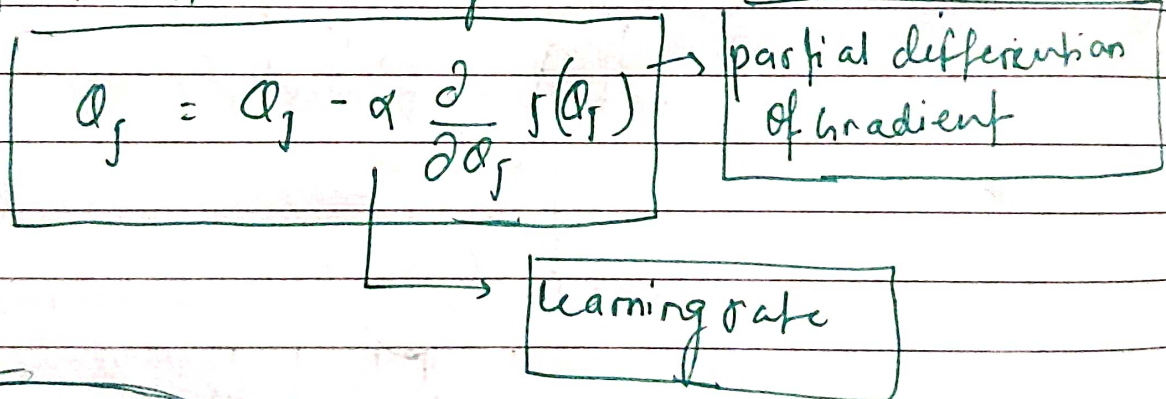 θj = θj - α ∂/∂θj J(θj)
partial differention
of Gradient
learning rate